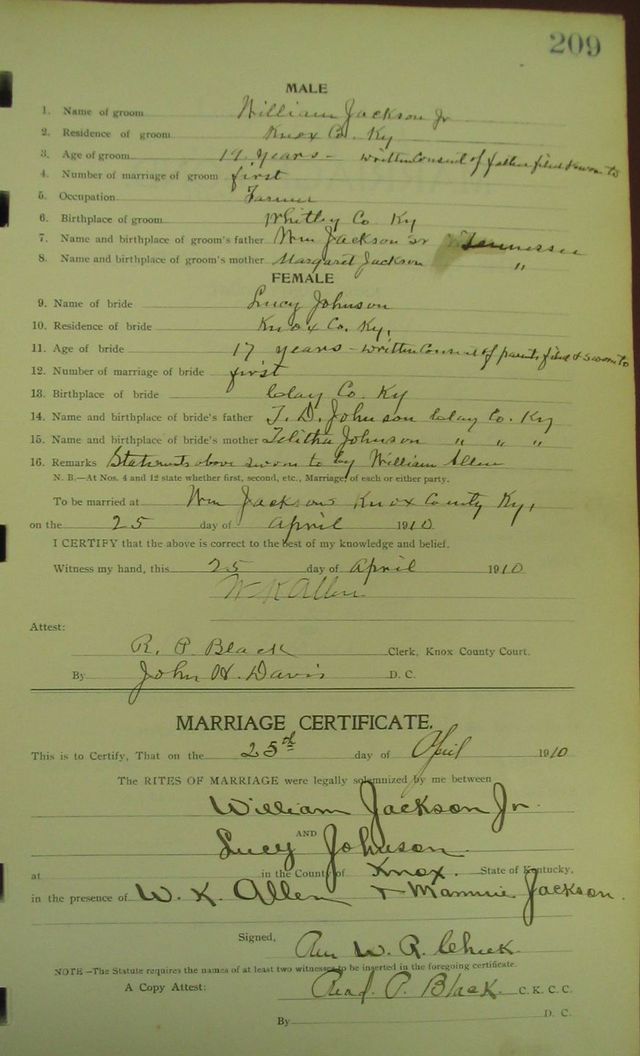 209
MALE
1. Name of groom William Jackson Jr
2. Residence of groom Knox Co. Ky
3. Age of groom 19 years - written Consent of father filed & sworn to
4. Number of marriage of groom first
5. Occupation Farmer
6. Birthplace of groom Whitley Co Ky
7. Name and birthplace of groom's father Wm Jackson Sr Tennessee
8. Name and birthplace of groom's mother Margaret Jackson "
FEMALE
9. Name of bride Lucy Johnson
10. Residence of bride Knox Co. Ky,
11. Age of bride 17 years - written Consent of parents filed & sworn to
12. Number of marriage of bride first
13. Birthplace of bride Clay Co. Ky
14. Name and birthplace of bride's father T. D. Johnson Clay Co. Ky
15. Name and birthplace of bride's mother Telitha Johnson " " "
16. Remarks Statements above sworn to by William Allen
N. B.—At Nos. 4 and 12 state whether first, second, etc., Marriage, of each or either party.
To be married at Wm Jacksons Knox County Ky,
on the 25 day of April 1910
I CERTIFY that the above is correct to the best of my knowledge and belief.
Witness my hand, this 25 day of April 1910
W K Allen
Attest:
R. P. Black Clerk, Knox County Court.
By John H. Davis D. C.
MARRIAGE CERTIFICATE.
This is to Certify, That on the 25th day of April 1910
The RITES OF MARRIAGE were legally solemnized by me between
William Jackson Jr.
AND
Lucy Johnson.
at in the County of Knox. State of Kentucky,
in the presence of W. K. Allen + Mannie Jackson.
Signed, Rev W. R. Cheek
NOTE—The Statute requires the names of at least two witnesses to be inserted in the foregoing certificate.
A Copy Attest: Read P. Black C. K. C. C.
By D. C.